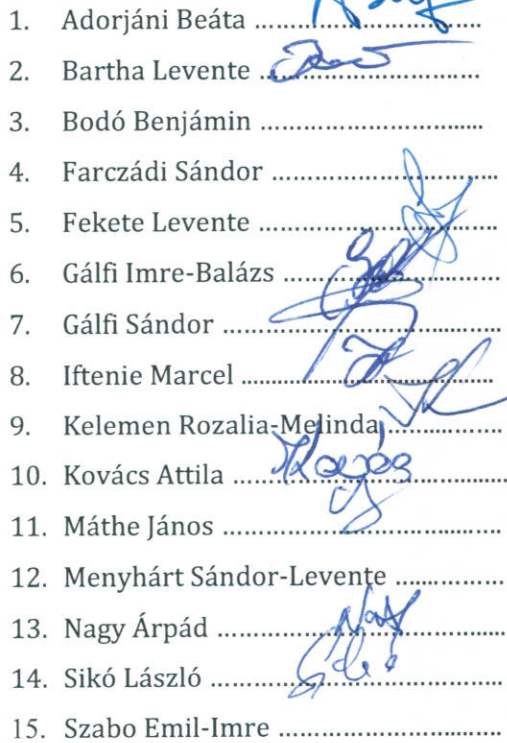 1. Adorjáni Beáta ........................................
2. Bartha Levente ........................................
3. Bodó Benjámin ........................................
4. Farczádi Sándor ........................................
5. Fekete Levente ........................................
6. Gálfi Imre-Balázs ........................................
7. Gálfi Sándor ........................................
8. Iftenie Marcel ........................................
9. Kelemen Rozalia-Melinda ....................
10. Kovács Attila ........................................
Kovács
11. Máthe János ........................................
12. Menyhárt Sándor-Levente ....................
13. Nagy Árpád ........................................
14. Sikó László ........................................
15. Szabo Emil-Imre ........................................